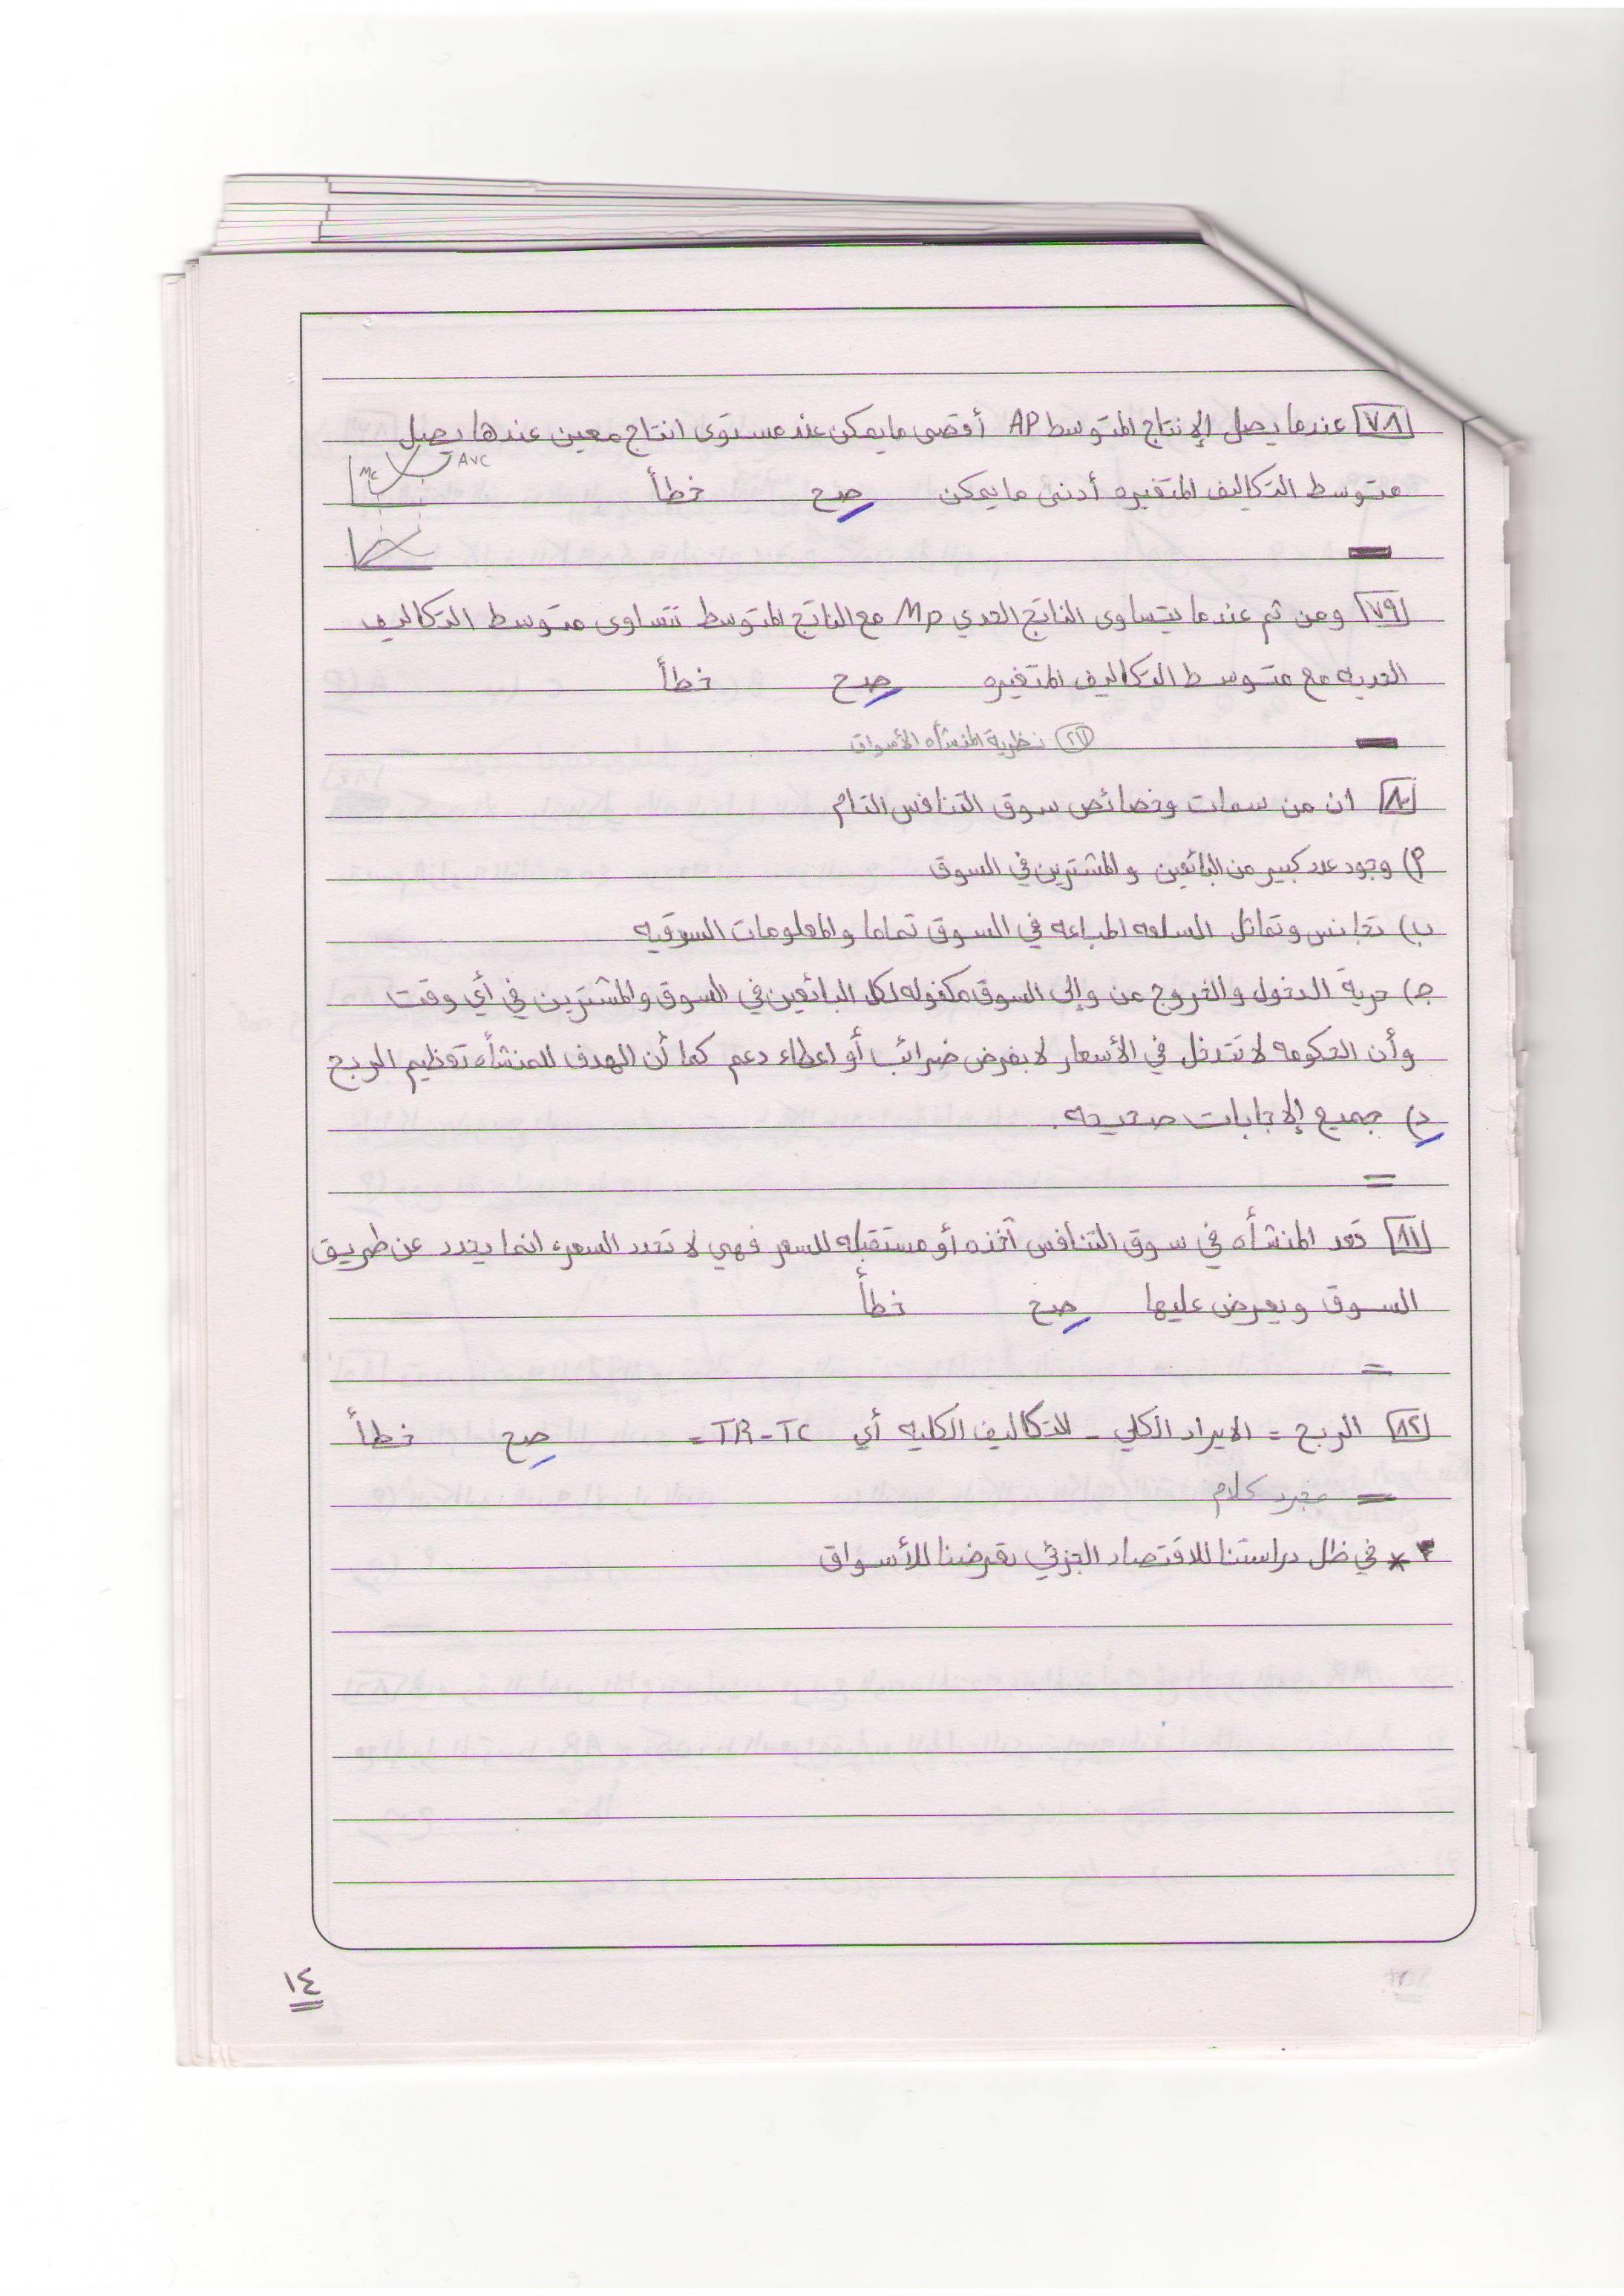 ٧٨ عندما يصل الإنتاج المتوسط AP أقصى ما يمكن عند مستوى انتاج معين عندها يصل
متوسط التكاليف المتغيره أدنى ما يمكن صح خطأ
MC AVC
٧٩ ومن ثم عندما يتساوى الناتج الحدي MP مع الناتج المتوسط تتساوى متوسط التكاليف
الحديه مع متوسط التكاليف المتغيره صح خطأ
نظرية المنشأه الأسواق
٨٠ ان من سمات وخصائص سوق التنافس التام
أ) وجود عدد كبير من البائعين والمشترين في السوق
ب) تجانس وتماثل السلعه المباعه في السوق تماما والمعلومات السوقيه
ج) حرية الدخول والخروج من وإلى السوق مكفوله لكل البائعين في السوق والمشترين في أي وقت
وأن الحكومه لا تتدخل في الأسعار لا بفرض ضرائب أو اعطاء دعم كما أن الهدف للمنشأه تعظيم الربح
د) جميع الإجابات صحيحه .
=
٨١ تعد المنشأه في سوق التنافس آخذه أو مستقبله للسعر فهي لا تحدد السعر انما يحدد عن طريق
السوق ويعرض عليها صح خطأ
=
٨٢ الربح = الايراد الكلي - للتكاليف الكليه أي TR - TC = صح خطأ
= مجرد كلام
* في ظل دراستنا للاقتصاد الجزئي تعرضنا للأسواق
١٤